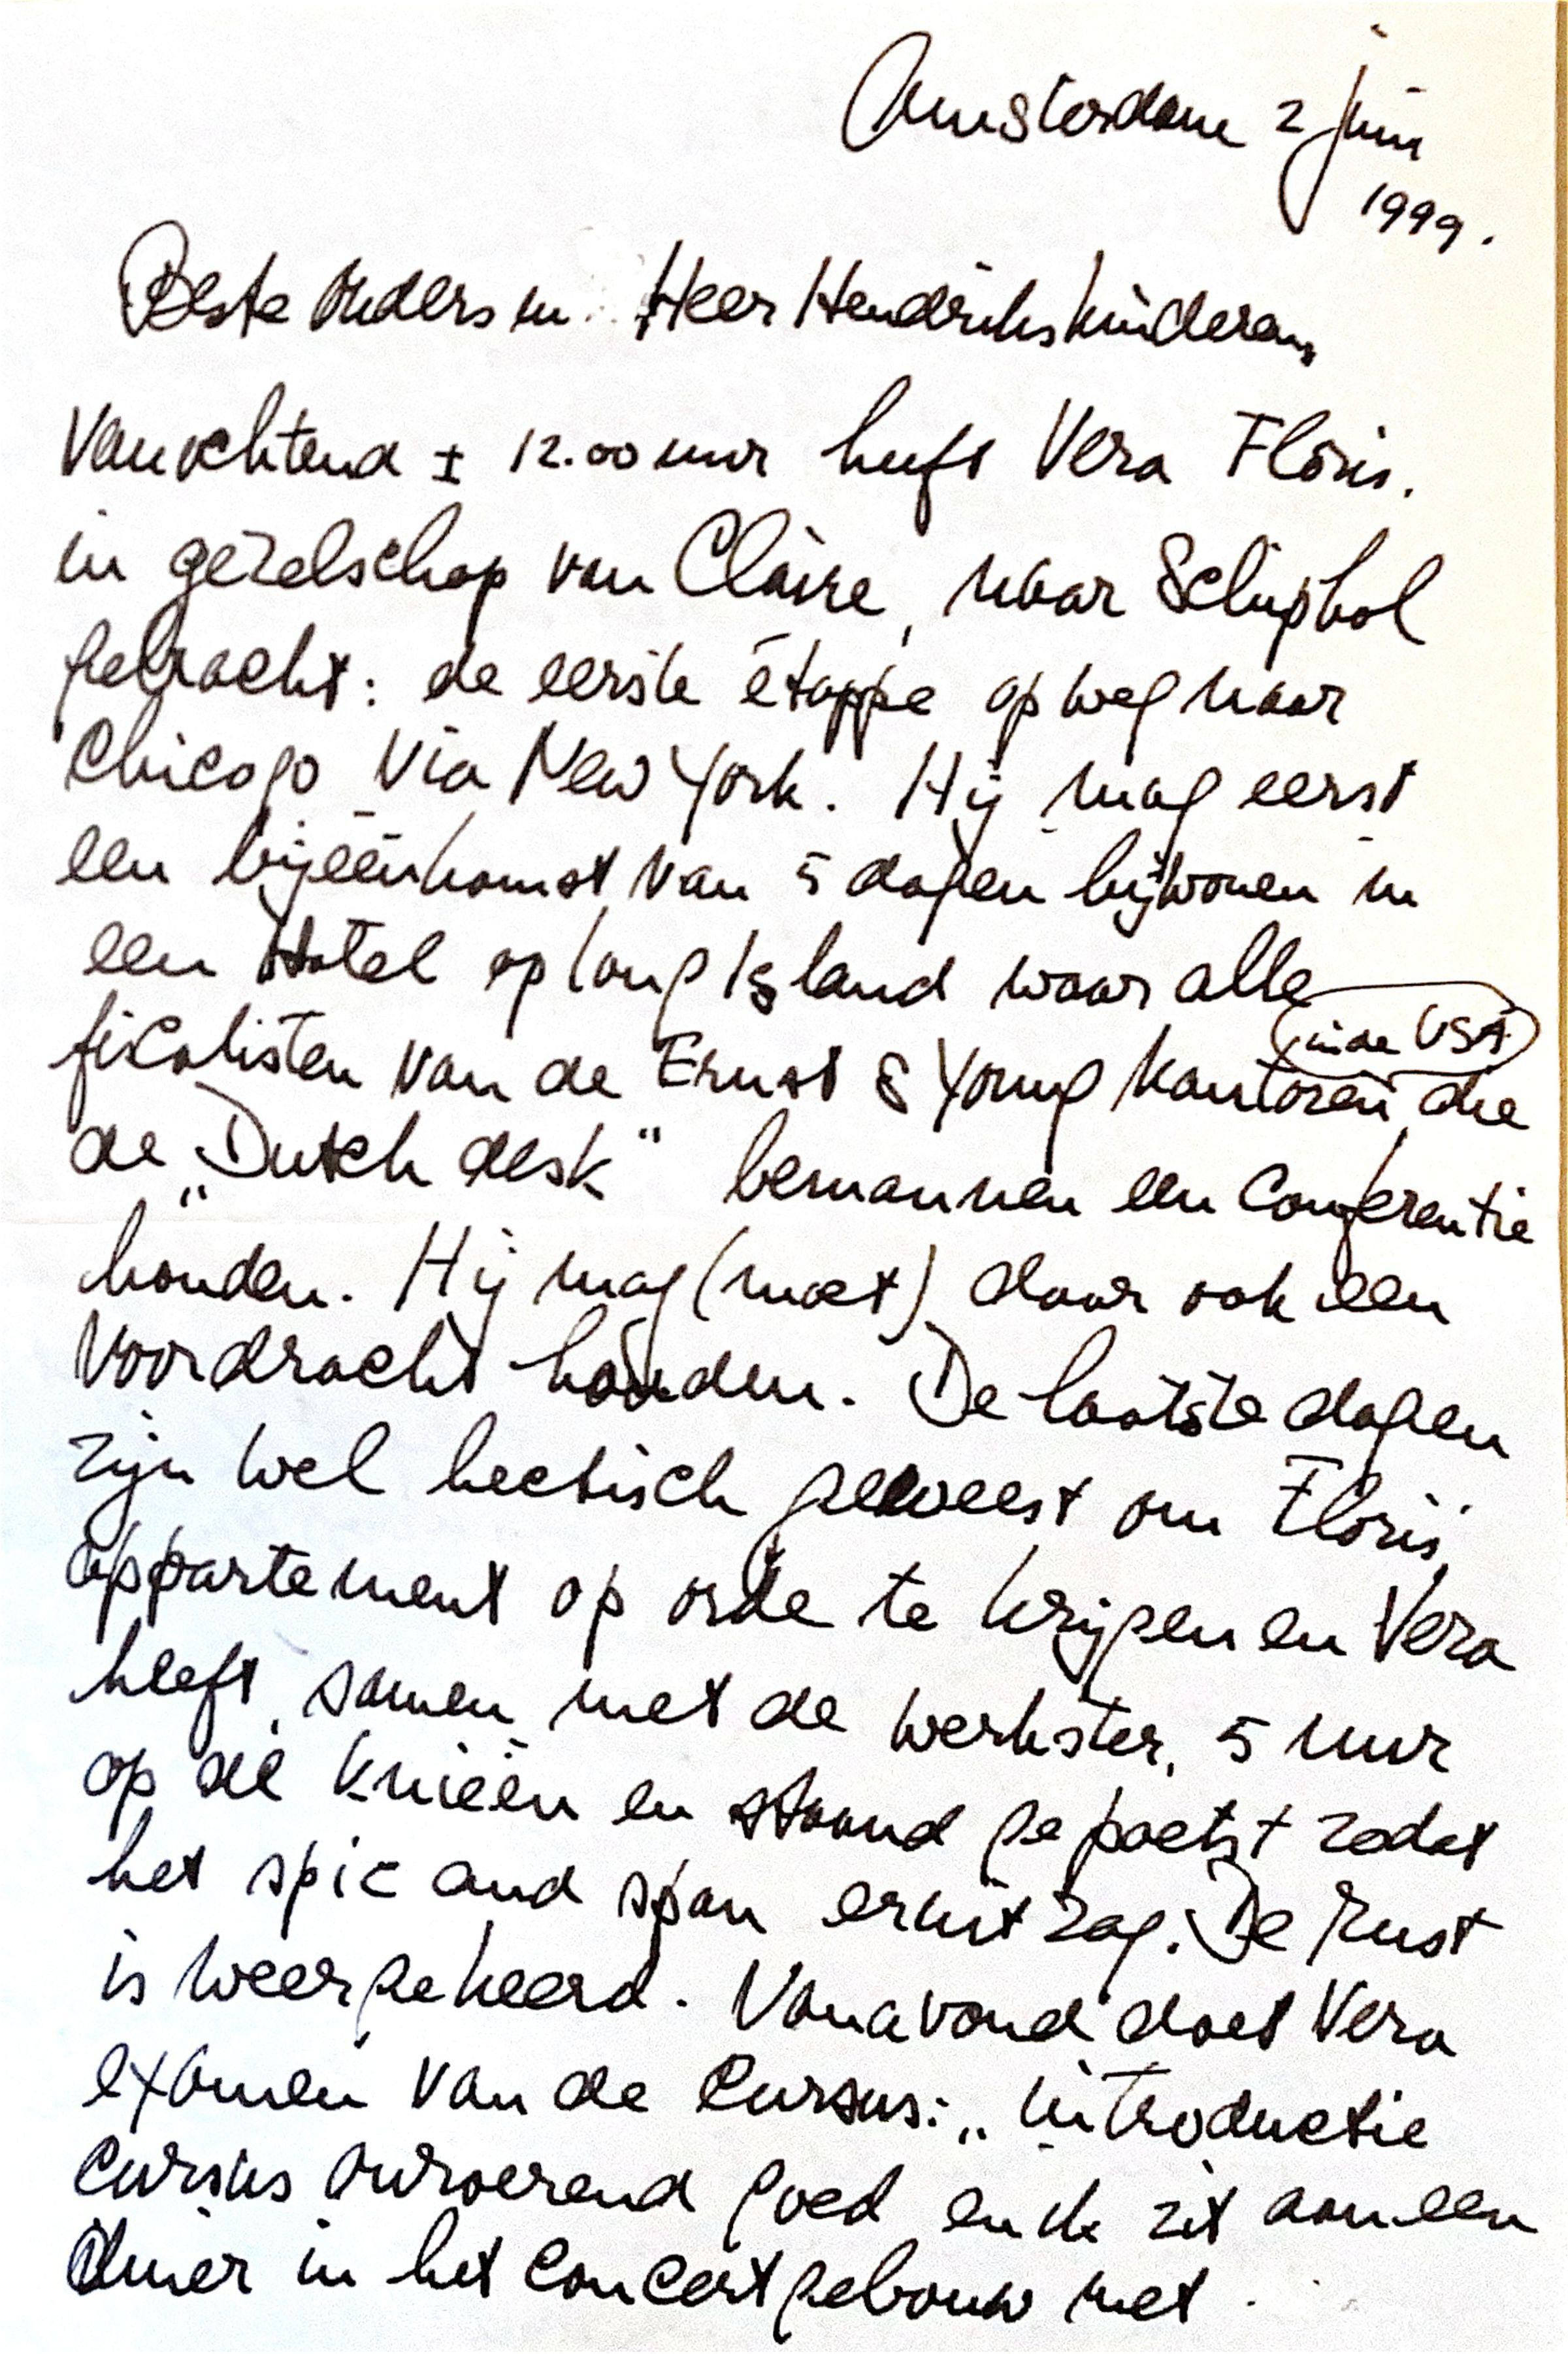 Amsterdam 2 juni
1999.
Beste Ouders en Heer Hendrikskinderen,
Vanochtend ± 12.00 uur heeft Vera Floris.
in gezelschap van Claire, naar Schiphol
gebracht: de eerste etappe op weg naar
Chicago via New York. Hij mag eerst
een bijéénkomst van 5 dagen bijwonen in
een Hotel op long Island waar alle
in de USA
fiscalisten van de Ernst & Young kantoren die
de „Dutch desk" bemannen een Conferentie
houden. Hij mag (moet) daar ook een
Voordracht houden. De laatste dagen
zijn wel hectisch geweest om Floris,
appartement op orde te krijgen en Vera
heeft, samen met de werkster, 5 uur
op de knieën en staand gepoetst zodat
het spic and span eruit zag. De rust
is weergekeerd. Vanavond doet Vera
examen van de Cursus: „introductie
Cursus onroerend goed en ik zit aan een
diner in het Concertgebouw met